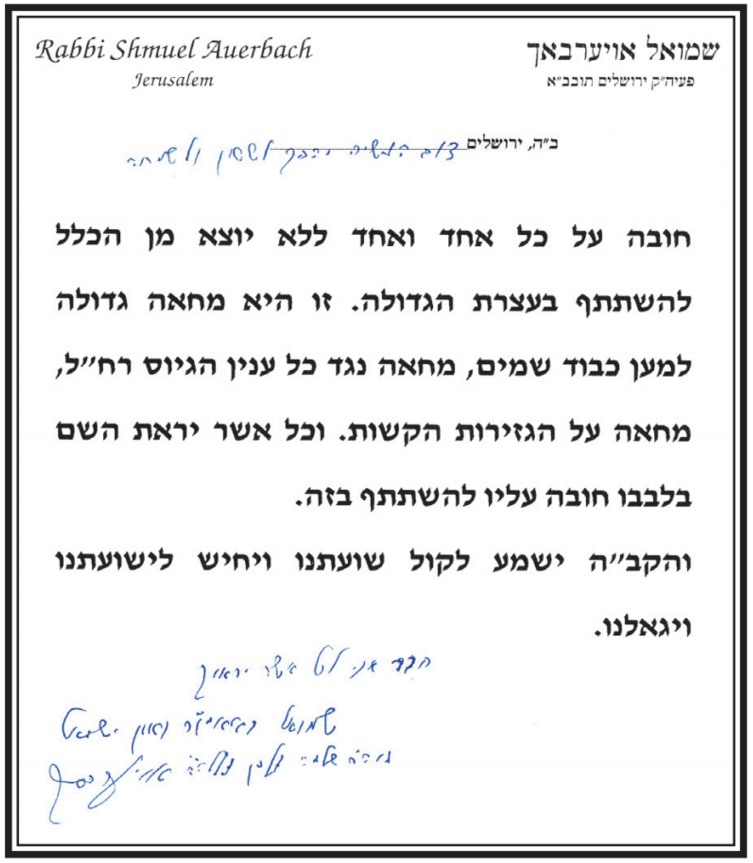 Rabbi Shmuel Auerbach
Jerusalem
שמואל אויערבאך
פעיה״ק ירושלים תובב״א
ב״ה, ירושלים צום החמישי יהפך לששון ולשמחה
חובה על כל אחד ואחד ללא יוצא מן הכלל
להשתתף בעצרת הגדולה. זו היא מחאה גדולה
למען כבוד שמים, מחאה נגד כל ענין הגיוס רח״ל,
מחאה על הגזירות הקשות. וכל אשר יראת השם
בלבבו חובה עליו להשתתף בזה.
והקב״ה ישמע לקול שועתנו ויחיש לישועתנו
ויגאלנו.
חבר אני לכל אשר יראוך
שמואל
שלמה זלמן אויערבאך